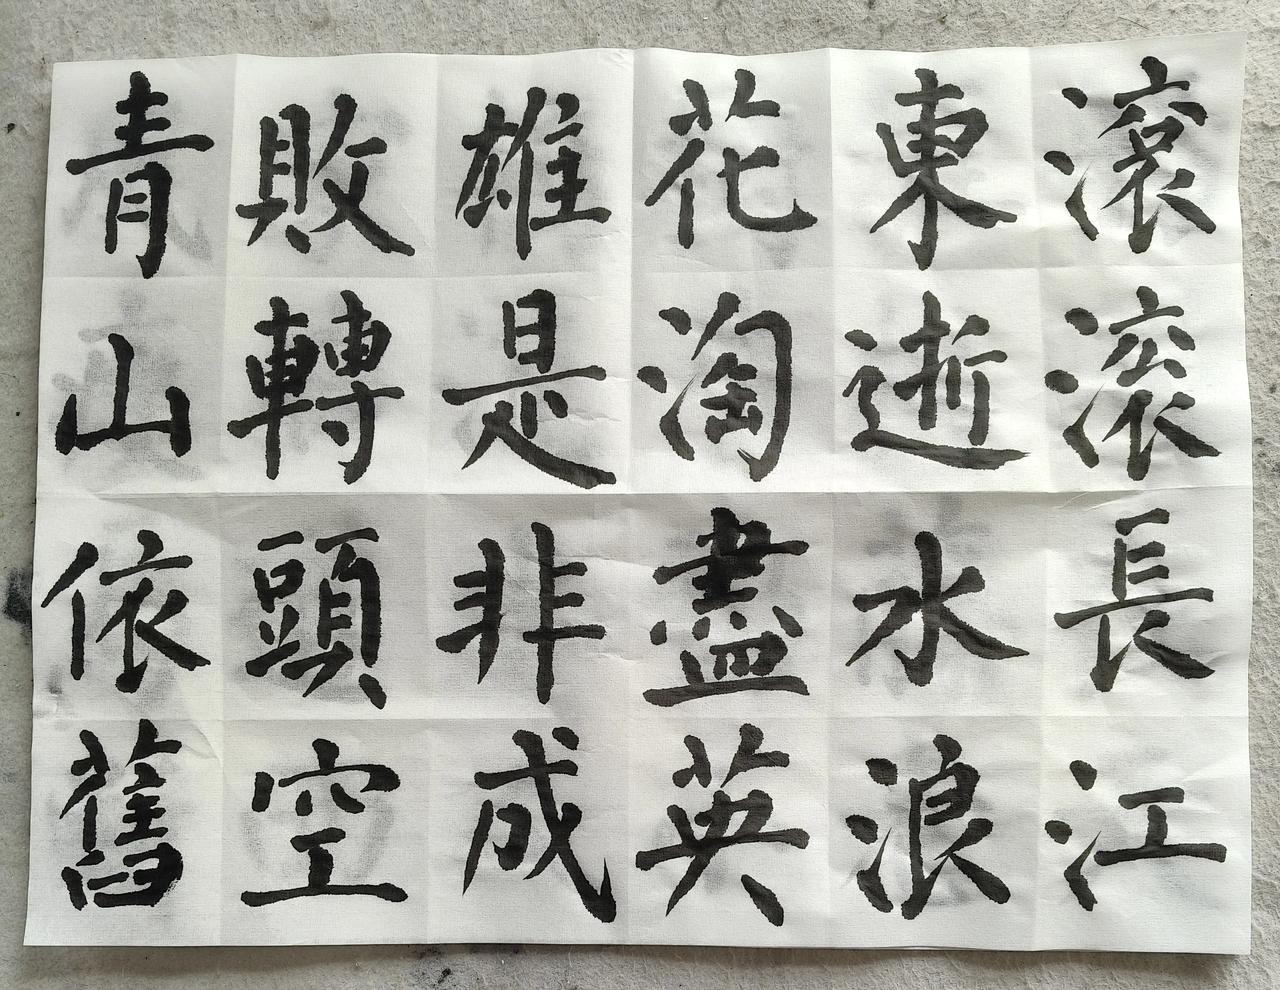 滾滾長江
東逝水浪
花淘盡英
雄是非成
敗轉頭空
青山依舊